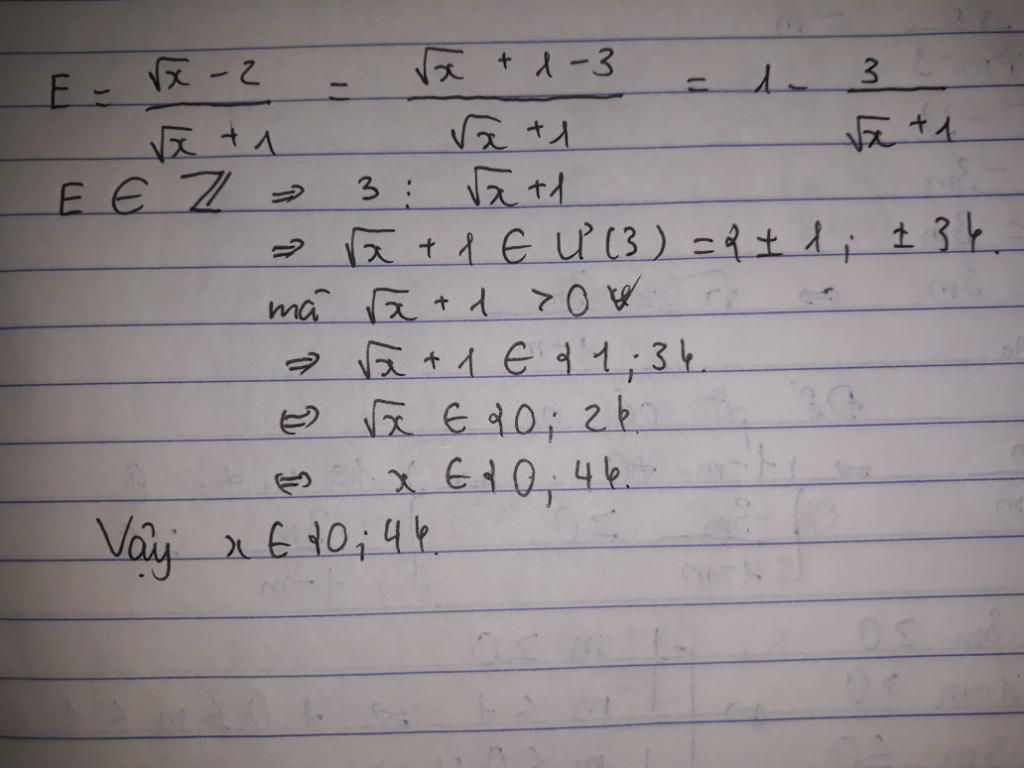 E = (√x - 2)/(√x + 1) = (√x + 1 - 3)/(√x + 1) = 1 - 3/(√x + 1)
E ∈ ℤ ⇒ 3 ⋮ √x + 1
⇒ √x + 1 ∈ Ư(3) = {± 1 ; ± 3}.
mà √x + 1 > 0
⇒ √x + 1 ∈ {1 ; 3}.
⇔ √x ∈ {0 ; 2}.
⇔ x ∈ {0 ; 4}.
Vậy x ∈ {0 ; 4}.